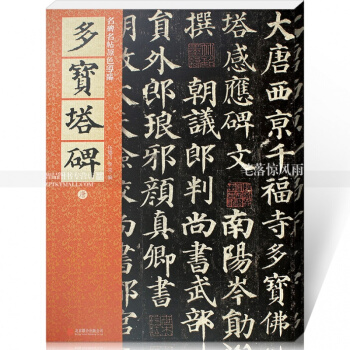 多寶塔碑
大唐西京千福寺多寶佛
塔感應碑文 南陽岑勛
撰 朝議郎判尚書武部
員外郎琅邪顏真卿書
笔落惊风雨